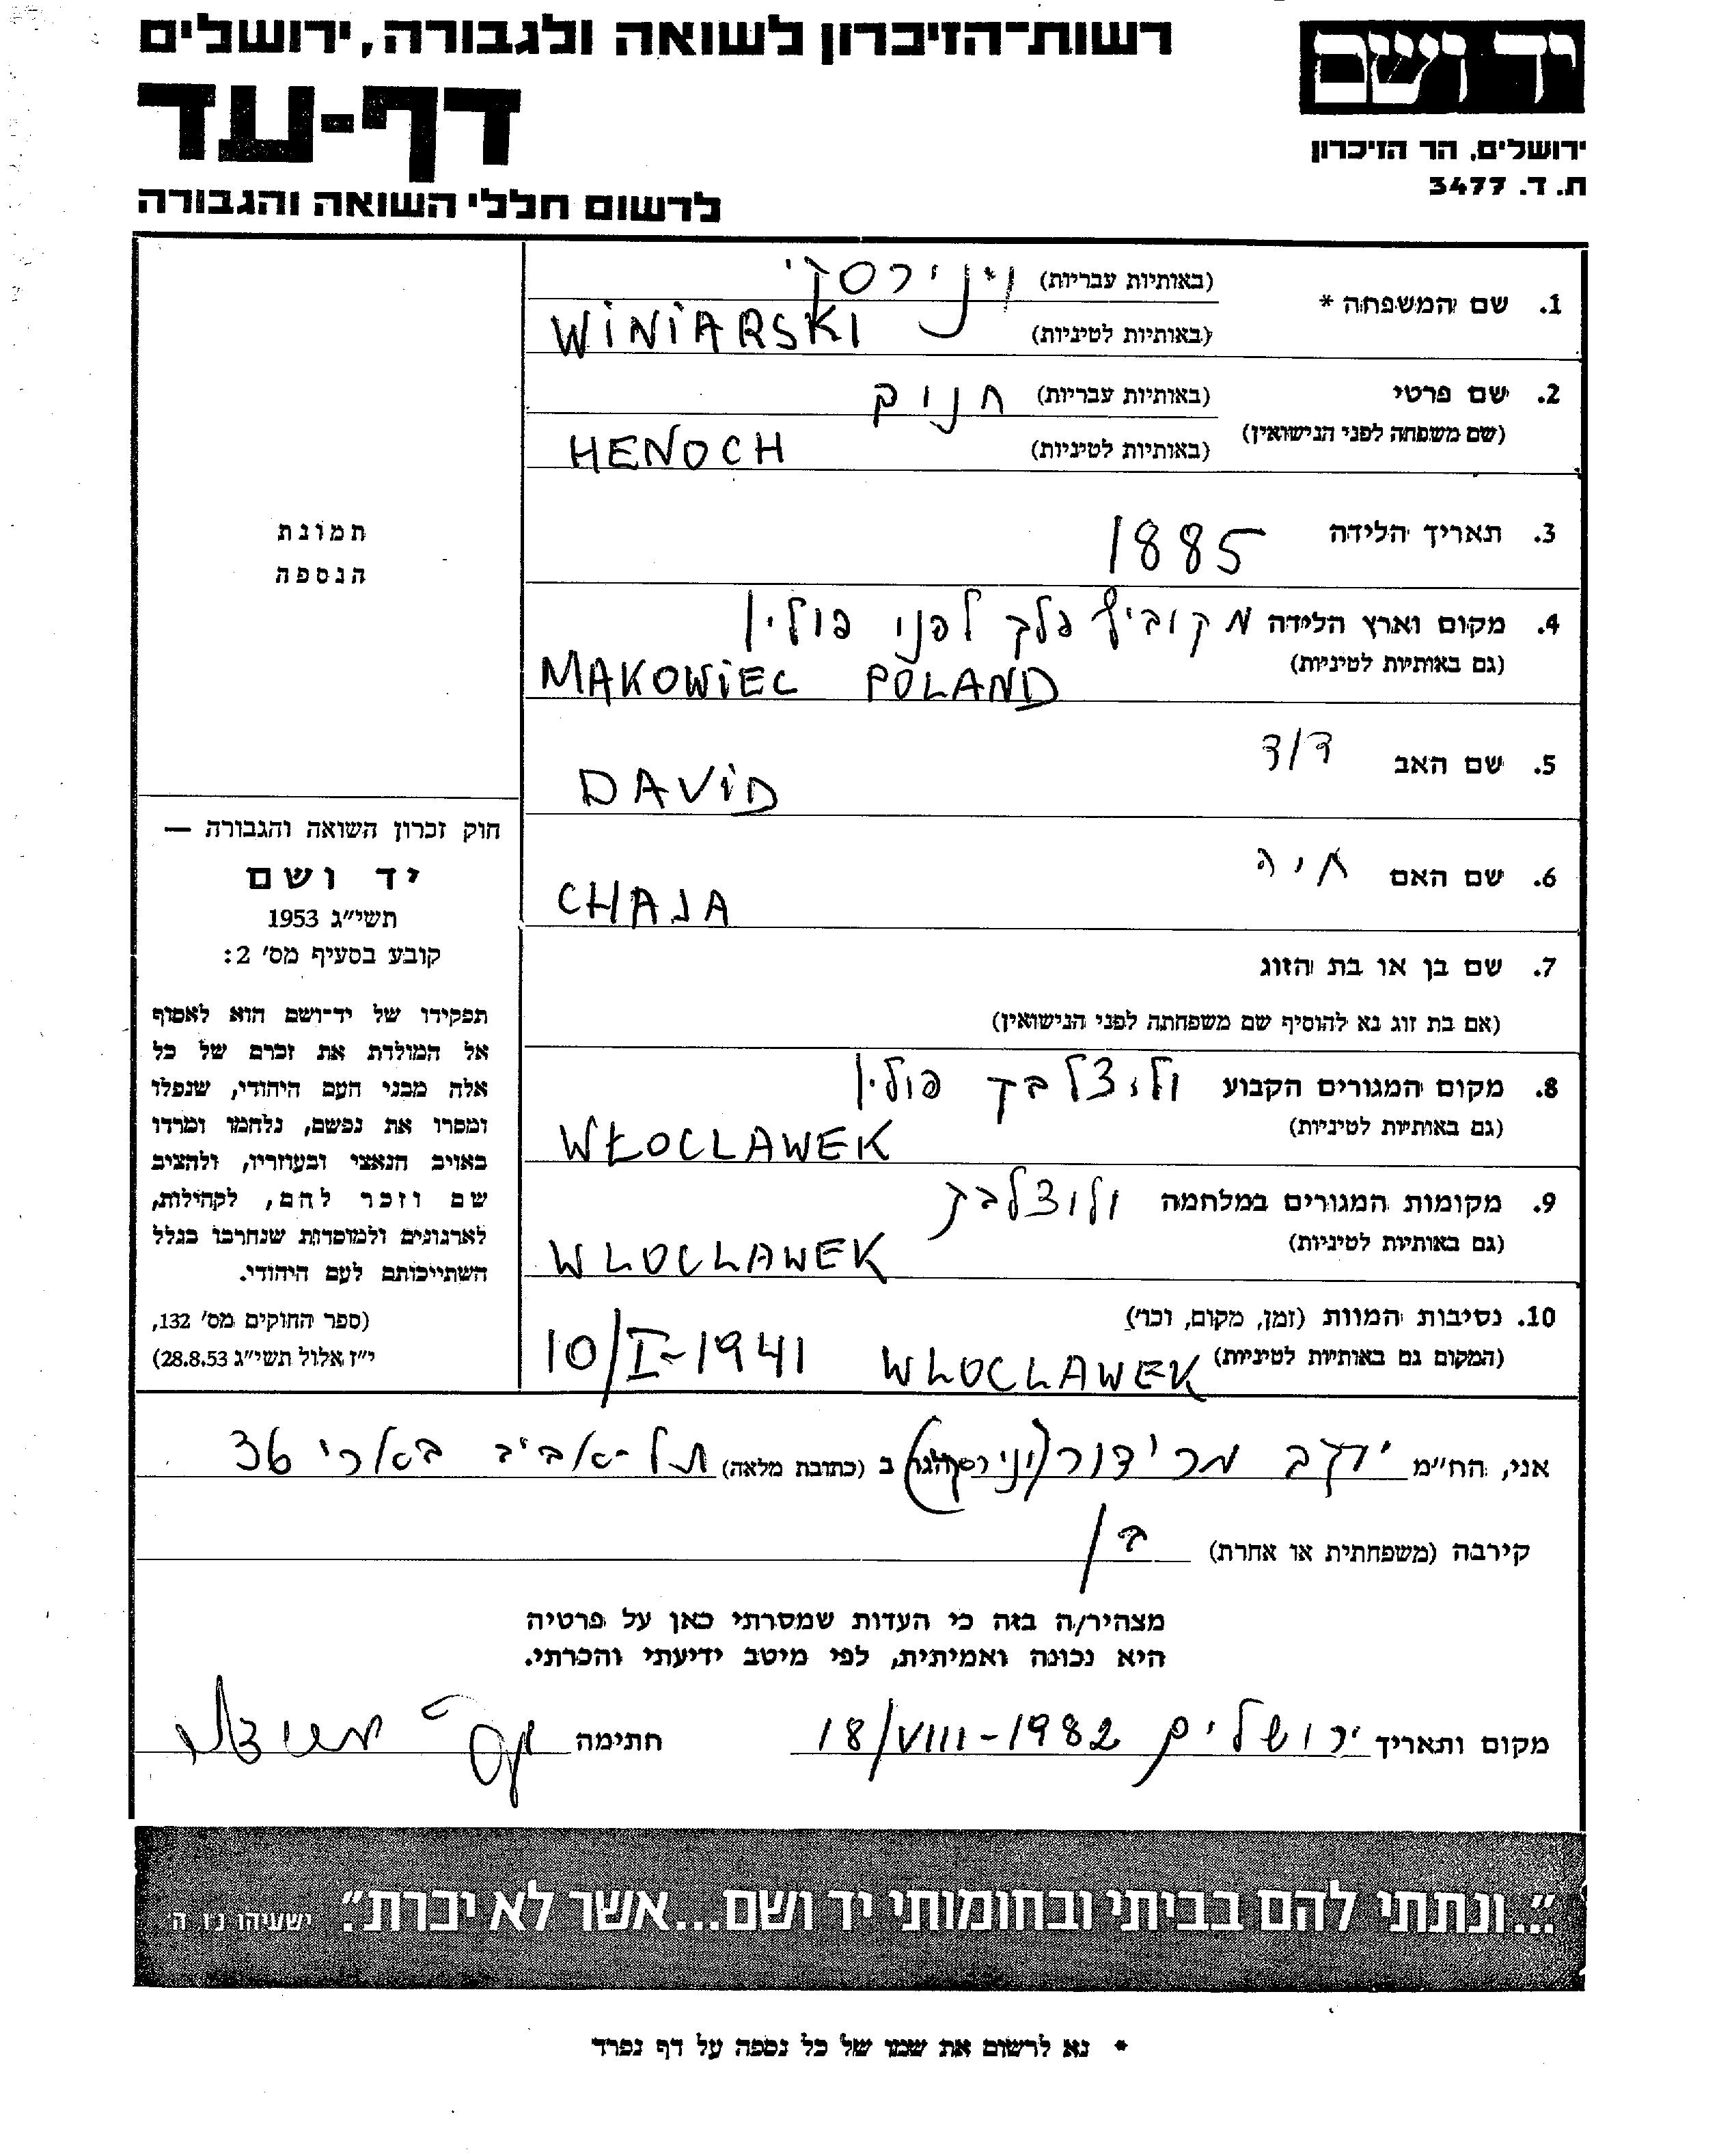 רשות־הזיכרון לשואה ולגבורה, ירושלים
יד ושם
דף-עד
ירושלים, הר הזיכרון
ת. ד. 3477
לרשום חללי השואה והגבורה
1. שם המשפחה * (באותיות עבריות) וינירסקי
(באותיות לטיניות) WINIARSKI
2. שם פרטי (באותיות עבריות) חנוך
(שם משפחה לפני הנישואין) (באותיות לטיניות) HENOCH
3. תאריך הלידה 1885
תמונת
הנספה
4. מקום וארץ הלידה פולין
(גם באותיות לטיניות) MAKOWIEC POLAND
5. שם האב דוד
DAVID
6. שם האם חיה
CHAJA
7. שם בן או בת הזוג
(אם בת זוג נא להוסיף שם משפחתה לפני הנישואין)
8. מקום המגורים הקבוע ולוצלבק פולין
(גם באותיות לטיניות) WŁOCLAWEK
9. מקומות המגורים במלחמה ולוצלבק
(גם באותיות לטיניות) WLOCLAWEK
10. נסיבות המוות (זמן, מקום, וכו')
(המקום גם באותיות לטיניות) WLOCLAWEK 10/I-1941
חוק זכרון השואה והגבורה —
יד ושם
תשי״ג 1953
קובע בסעיף מס׳ 2:
תפקידו של יד־ושם הוא לאסוף
אל המולדת את זכרם של כל
אלה מבני העם היהודי, שנפלו
ומסרו את נפשם, נלחמו ומרדו
באויב הנאצי ובעוזריו, ולהציב
שם וזכר להם, לקהילות,
לארגונים ולמוסדות שנחרבו בגלל
השתייכותם לעם היהודי.
(ספר החוקים מס׳ 132,
י״ז אלול תשי״ג 28.8.53)
אני, הח״מ יעקב מרידור (וינירסקי) הגר ב (כתובת מלאה) תל-אביב בארי 36
קירבה (משפחתית או אחרת) בן
מצהיר/ה בזה כי העדות שמסרתי כאן על פרטיה
היא נכונה ואמיתית, לפי מיטב ידיעתי והכרתי.
מקום ותאריך ירושלים 18/VIII-1982 חתימה
״...ונתתי להם בביתי ובחומותי יד ושם...אשר לא יכרת״. ישעיהו נ״ו ה׳
* נא לרשום את שמו של כל נספה על דף נפרד